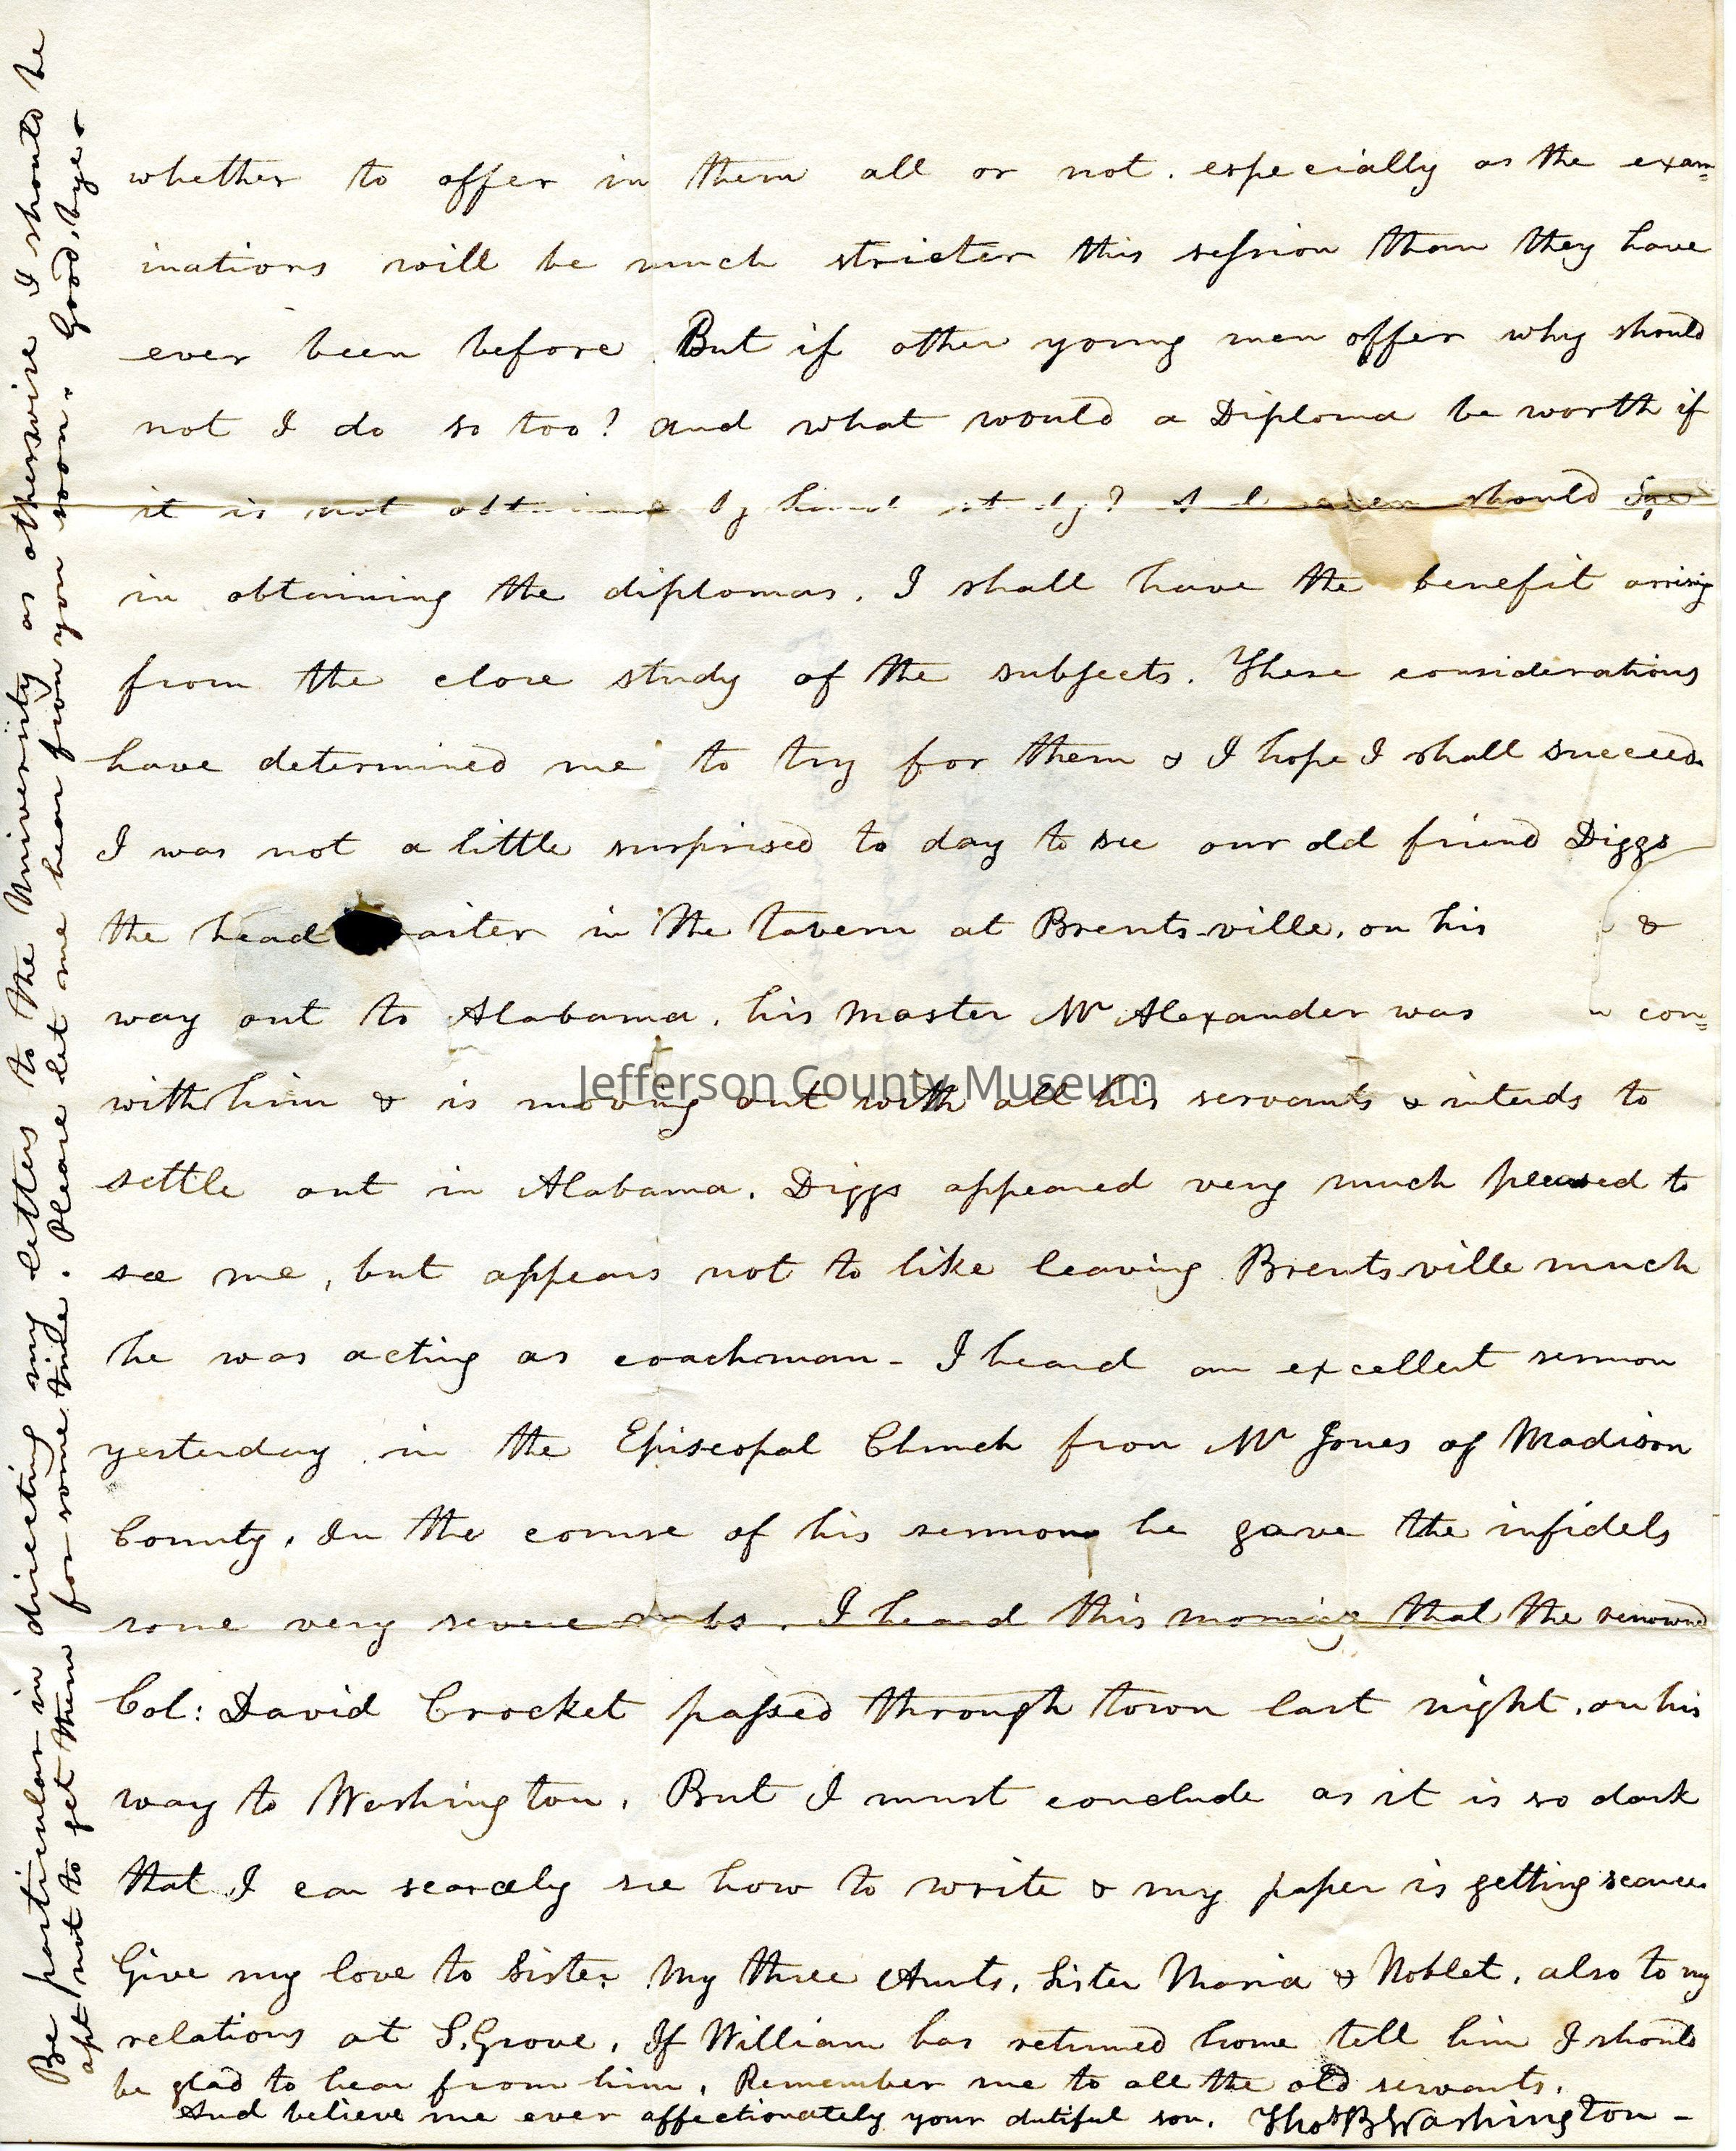 whether to offer in them all or not. especially as the exam=
inations will be much stricter this session than they have
ever been before. But if other young men offer why should
not I do so too? and what would a Diploma be worth if
it is not obtained by hard study? should
in obtaining the diplomas. I shall have the benefit arising
from the close study of the subjects. These considerations
have determined me to try for them & I hope I shall succeed.
I was not a little surprised to day to see our old friend Diggs
the head aiter in the tavern at Brents-ville, on his &
way out to Alabama, his master Mr Alexander was con=
with him & is moving out with all his servants & intends to
settle out in Alabama. Diggs appeared very much pleased to
see me, but appears not to like leaving Brentsville much
he was acting as coachman - I heard an excellent sermon
yesterday in the Episcopal Church from Mr Jones of Madison
County. In the course of his sermon he gave the infidels
some very severe rubs. I heard this morning that the renowned
Col: David Crocket passed through town last night, on his
way to Washington. But I must conclude as it is so dark
that I can scarcely see how to write & my paper is getting scarce
Give my love to Sister, My three Aunts, Sister Maria & Noblet, also to my
relations at S.Grove, If William has returned home tell him I should
be glad to hear from him, Remember me to all the old servants.
And believe me ever affectionately your dutiful son. Thos B Washington -
Be particular in directing my letters to the University as otherwise I should be
apt not to get them for some time. Please let me hear from you soon. Good, bye -
Jefferson County Museum